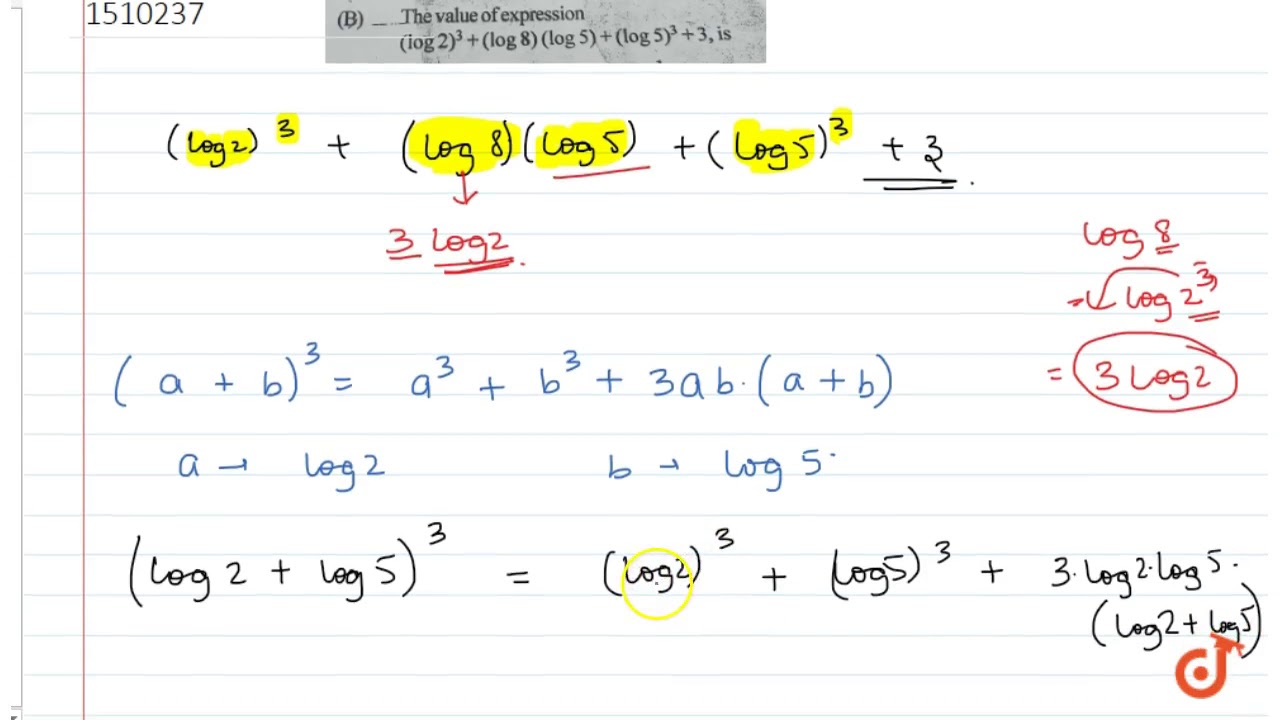 1510237
(B) — The value of expression
(log 2)³ + (log 8) (log 5) + (log 5)³ + 3, is
(log2)³ + (log 8)(log 5) + (log 5)³ + 3.
3 log2.
log 8
= log 2³
= 3 log2
(a + b)³ = a³ + b³ + 3ab·(a + b)
a → log 2 b → log 5·
(log 2 + log 5)³ = (log2)³ + (log5)³ + 3·log2·log5·
(log2 + log5)